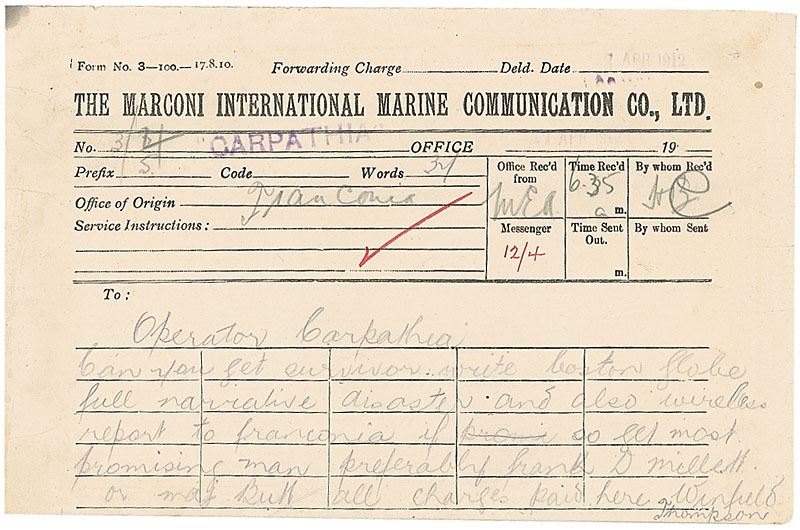 Form No. 3—100.—17.8.10. Forwarding Charge Deld. Date APR 1912
THE MARCONI INTERNATIONAL MARINE COMMUNICATION CO., LTD.
No. CARPATHIA OFFICE 19
Prefix S. Code Words 34
Office of Origin Franconia
Service Instructions:
Office Rec'd from MEA
Time Rec'd 6.35 a m.
By whom Rec'd
Messenger 12/4
Time Sent Out. m.
By whom Sent
To:
Operator Carpathia
Can you get survivor write boston globe
full narrative disaster and also wireless
report to franconia if so get most
promising man preferably frank D millett
or maj Butt all charges paid here Winfield
Thompson